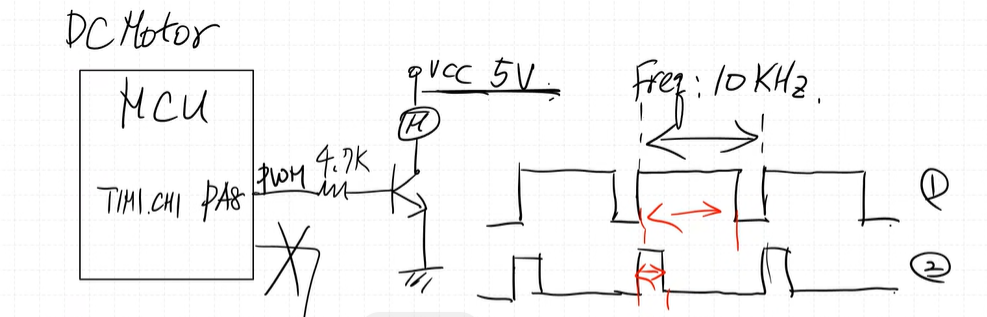 DC Motor
MCU
TIM1.CH1 PA8
PWM 4.7K
M
VCC 5V
Freq: 10KHz.
①
②